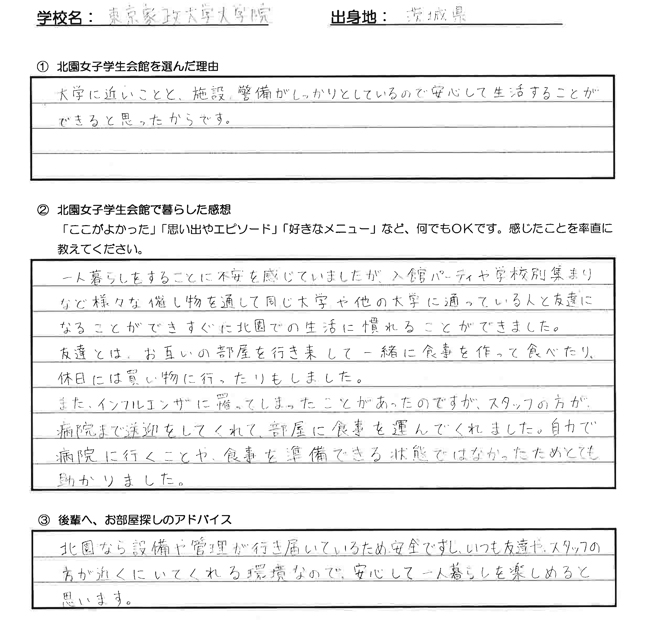 学校名： 東京家政大学大学院 出身地： 茨城県
① 北園女子学生会館を選んだ理由
大学に近いことと、施設、警備がしっかりとしているので安心して生活することが
できると思ったからです。
② 北園女子学生会館で暮らした感想
「ここがよかった」「思い出やエピソード」「好きなメニュー」など、何でもOKです。感じたことを率直に
教えてください。
一人暮らしをすることに不安を感じていましたが、入館パーティや学校別集まり
など様々な催し物を通して同じ大学や他の大学に通っている人と友達に
なることができすぐに北園での生活に慣れることができました。
友達とは、お互いの部屋を行き来して一緒に食事を作って食べたり、
休日には買い物に行ったりもしました。
また、インフルエンザに罹ってしまったことがあったのですが、スタッフの方が、
病院まで送迎をしてくれて、部屋に食事を運んでくれました。自力で
病院に行くことや、食事を準備できる状態ではなかったためとても
助かりました。
③ 後輩へ、お部屋探しのアドバイス
北園なら設備や管理が行き届いているため、安全ですし、いつも友達や、スタッフの
方が近くにいてくれる環境なので、安心して一人暮らしを楽しめると
思います。